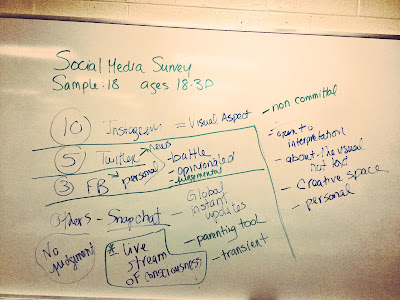 Social Media Survey
Sample: 18 ages 18-30
10 Instagram = Visual Aspect
5 Twitter News
3 FB personal
-battle
opinionated
-judgmental
Others - Snapchat
- Global
instant
updates
-parenting tool
-transient
No
judgment
* Live
stream
of consciousness
- non committal
- open to
interpretation
- about the visual
not text
- Creative space
- personal